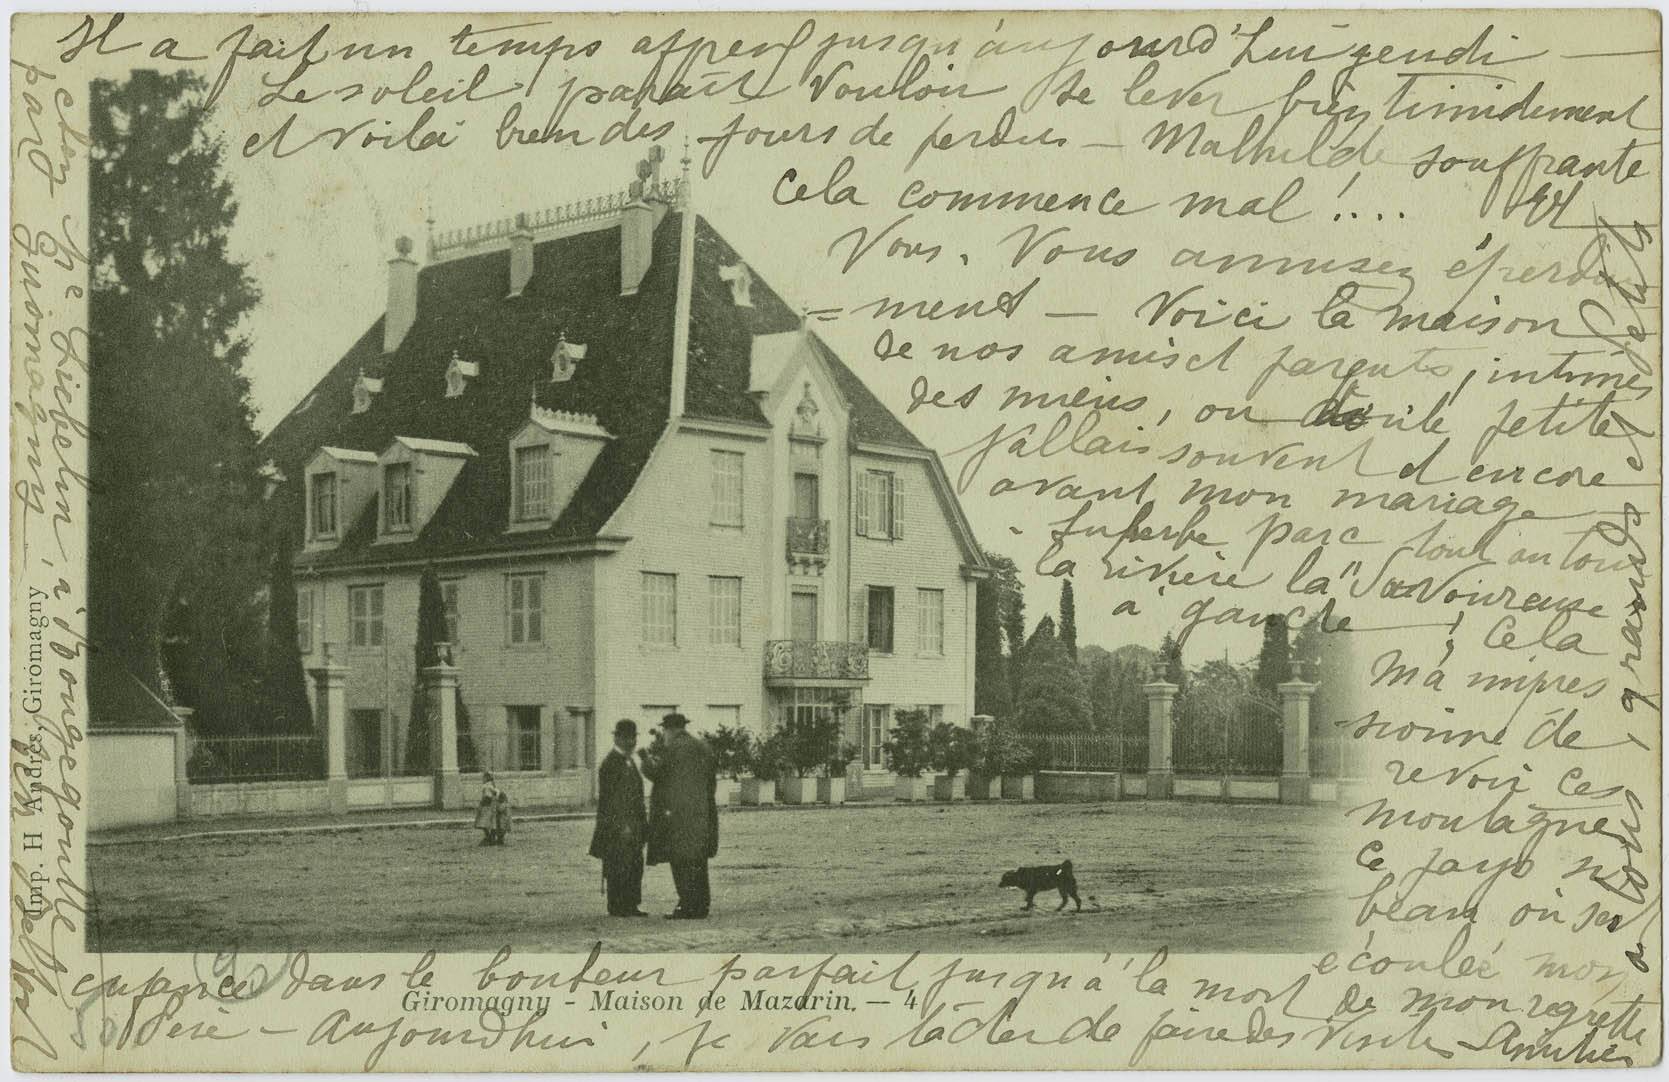 Il a fait un temps affreux jusqu'à aujourd'hui jeudi —
Le soleil paraît vouloir se lever bien timidement
et voilà bien des jours de perdus — Mathilde souffrante
cela commence mal !.... Et
Vous. Vous amusez éperdu
= ment — Voici la maison
de nos amis et parents, intimes
des miens, ou petite
j'allais souvent et encore
avant mon mariage —
- Superbe parc tout autour
la rivière la "Savoureuse
à gauche — ! Cela
m'a impres
sionné de
revoir ces
montagnes
ce pays si
beau où s'est
écoulée mon
enfance dans le bonheur parfait jusqu'à la mort de mon regretté
Père — Aujourd'hui, je vais tâcher de faire des visites — Amitiés
à tous, grands et petits
chez Me Liebelin, à Rougegoutte
par Giromagny
Imp. H Andrès, Giromagny
Giromagny - Maison de Mazarin. — 4